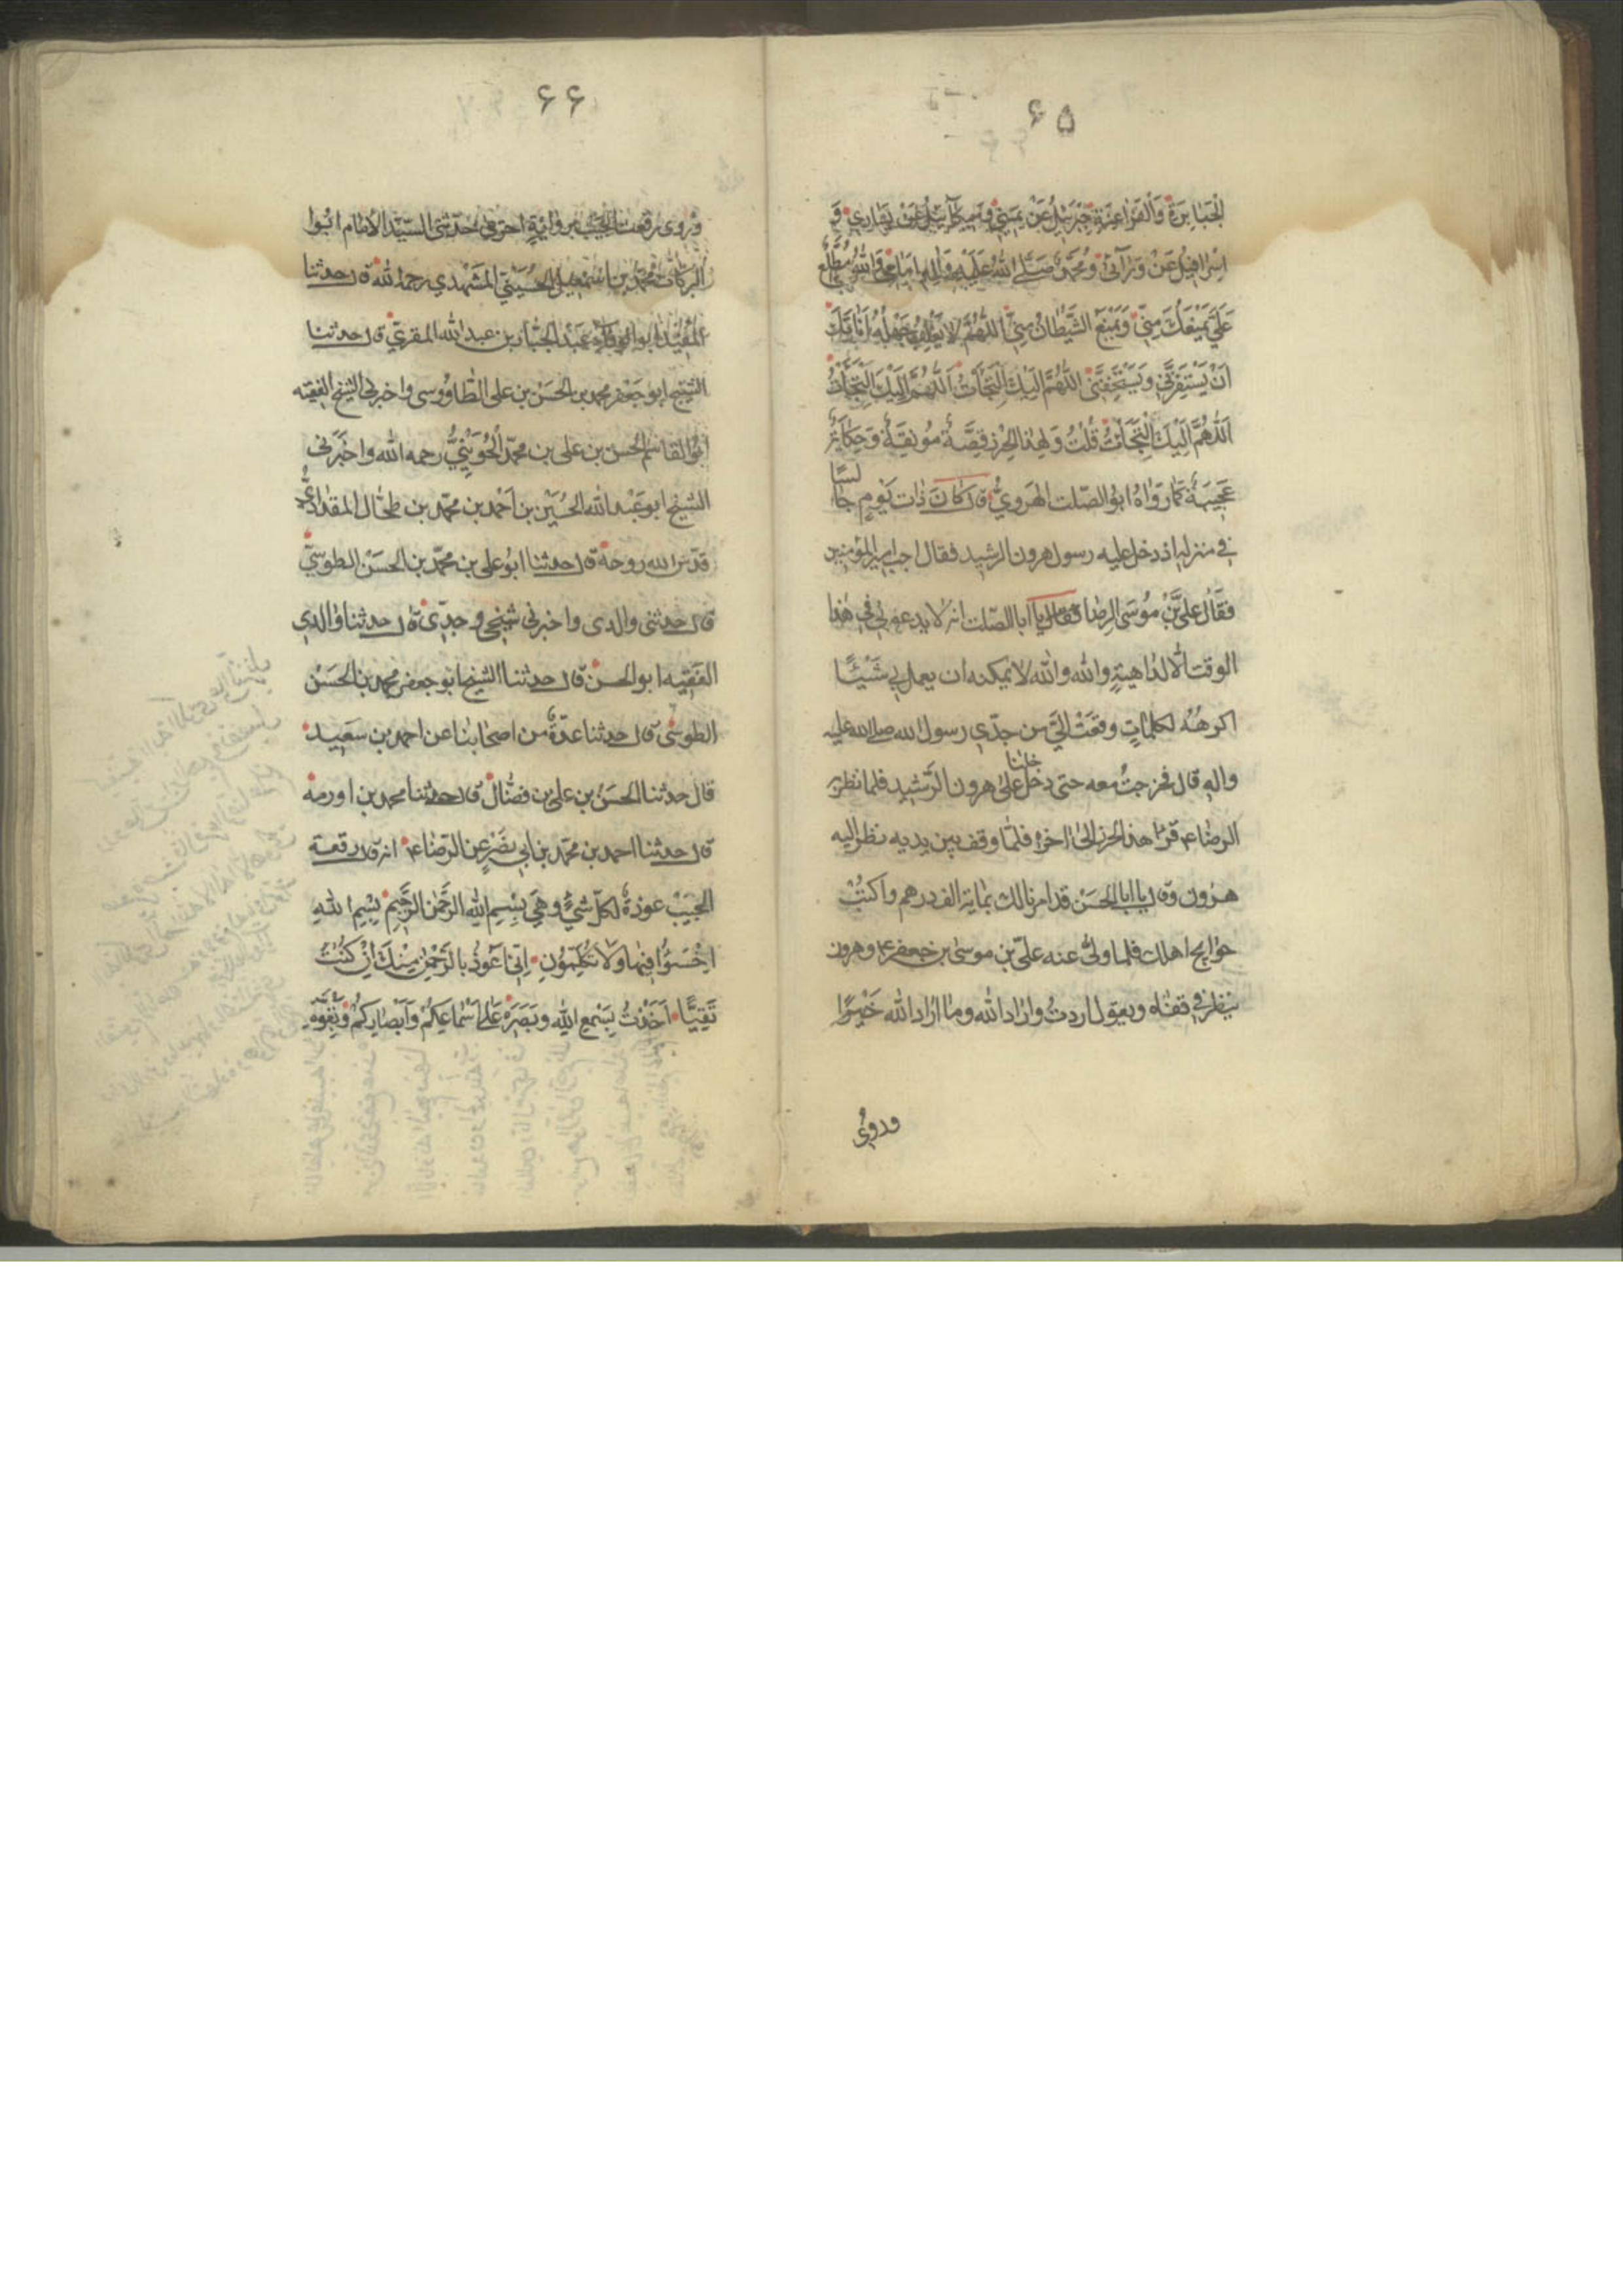 ۶۵
الجَبابِرَةِ وَالفَراعِنَةِ جَبْرَئيلُ عَنْ يَميني وَميكآئيلُ عَنْ يَساري وَ
اِسْرافيلُ عَنْ وَرآئي وَمُحَمَّدٌ صَلَّى اللهُ عَلَيْهِ وَآلِهِ اَمامي وَاللهُ مُطَّلِعٌ
عَلَيَّ يَمْنَعُكَ مِنّي وَيَمْنَعُ الشَّيْطانُ مِنّي اَللّهُمَّ لا يَغْلِبُ جَهْلُهُ اَناتَكَ
اَنْ يَسْتَفِزَّني وَيَسْتَخِفَّني اَللّهُمَّ اِلَيْكَ الْتَجَأْتُ اَللّهُمَّ اِلَيْكَ الْتَجَأْتُ
اَللّهُمَّ اِلَيْكَ الْتَجَأْتُ قُلْتُ وَلِهذا الحِرز قِصَّةٌ مُونِقَةٌ وَحِكايَةٌ
عَجيبَةٌ كَما رَواهُ ابُو الصّلت الهَرَويُّ قال كانَ ذات يَوْمٍ جالسًا
في منزله اذ دخل عليه رسول هرون الرشيد فقال اجب امير المؤمنين
فقال علىّ بْن مُوسَى الرِضا فقال لي يا ابا الصّلت انه لا يدعوني في هذا
الوقت الّا لداهيةٍ والله والله لا يمكنه ان يعمل بي شَيْئًا
اكرهُه لكلماتٍ وقعَتْ اليَّ من جدّي رسول الله صلى الله عليه
واله قال فخرجتُ معه حتى دخلنا على هرون الرّشيد فلما نظر به
الرضا ع قرأ هذا الحرز الى اخره فلمّا وقف بين يديه نظر اليه
هرون وقال يا ابا الحسَن قد امرنا لك بماية الف درهم واكتُبْ
حوايج اهلك فلما ولّى عنه علىّ بن موسى بن جعفر ع وهرون
ينظر في قفاه ويقول اردتُ واراد الله وما اراد الله خَيْرًا
وروى
۶۶
وروى رقعت الجيب بروايةٍ اخرى حدّثنى السيّد الامام ابوا
البركات محمّد بن اسمعيل الحُسَيْني المشهدي رحمه الله قال حدثنا
المفيد ابو الوفآء عبد الجبّار بن عبد الله المقري قال حدثنا
الشيخ ابو جعفر محمد بن الحسَن بن على الطاووسى واخبرنى الشيخ الفقيه
ابو القاسم الحسن بن على بن محمّد الجُوَيْنيُّ رحمه الله واخبَرَنى
الشيخ ابو عَبْد الله الحُسَيْن بن اَحمد بن محمّد بن طحّال المقدادىُّ
قدّس الله روحهُ قال حدثنا ابوُ على بن محمّد بن الحسَن الطوسيّ
قال حدثنى والدى واخبرنى شيخى وجدّى قال حدثنا والدي
الفَقيه ابو الحسن قال حدثنا الشيخ ابو جعفر محمد بن الحسَن
الطوسى قال حدثنا عدّةٌ من اصحابنا عن احمد بن سَعيد
قال حدثنا الحسَنُ بن علىّ بن فضّال قال حدثنا محمد بن اورمه
قال حدثنا احمد بن محمّد بن ابي نصْرٍ عن الرّضا ع انه قال رقعة
الجيب عوذةٌ لكلّ شئ وهيَ بِسْمِ اللهِ الرَّحْمنِ الرَّحيمِ بِسْمِ اللهِ
اخْسَئُوا فيها وَلا تُكَلِّمُونِ اِنّي اَعُوذُ بِالرَّحْمنِ مِنْكَ اِنْ كُنْتَ
تَقِيًّا اَخَذْتُ بِسَمْعِ اللهِ وَبَصَرِهِ عَلى اَسْماعِكُمْ وَاَبْصارِكُمْ وَبِقُوَّةِ